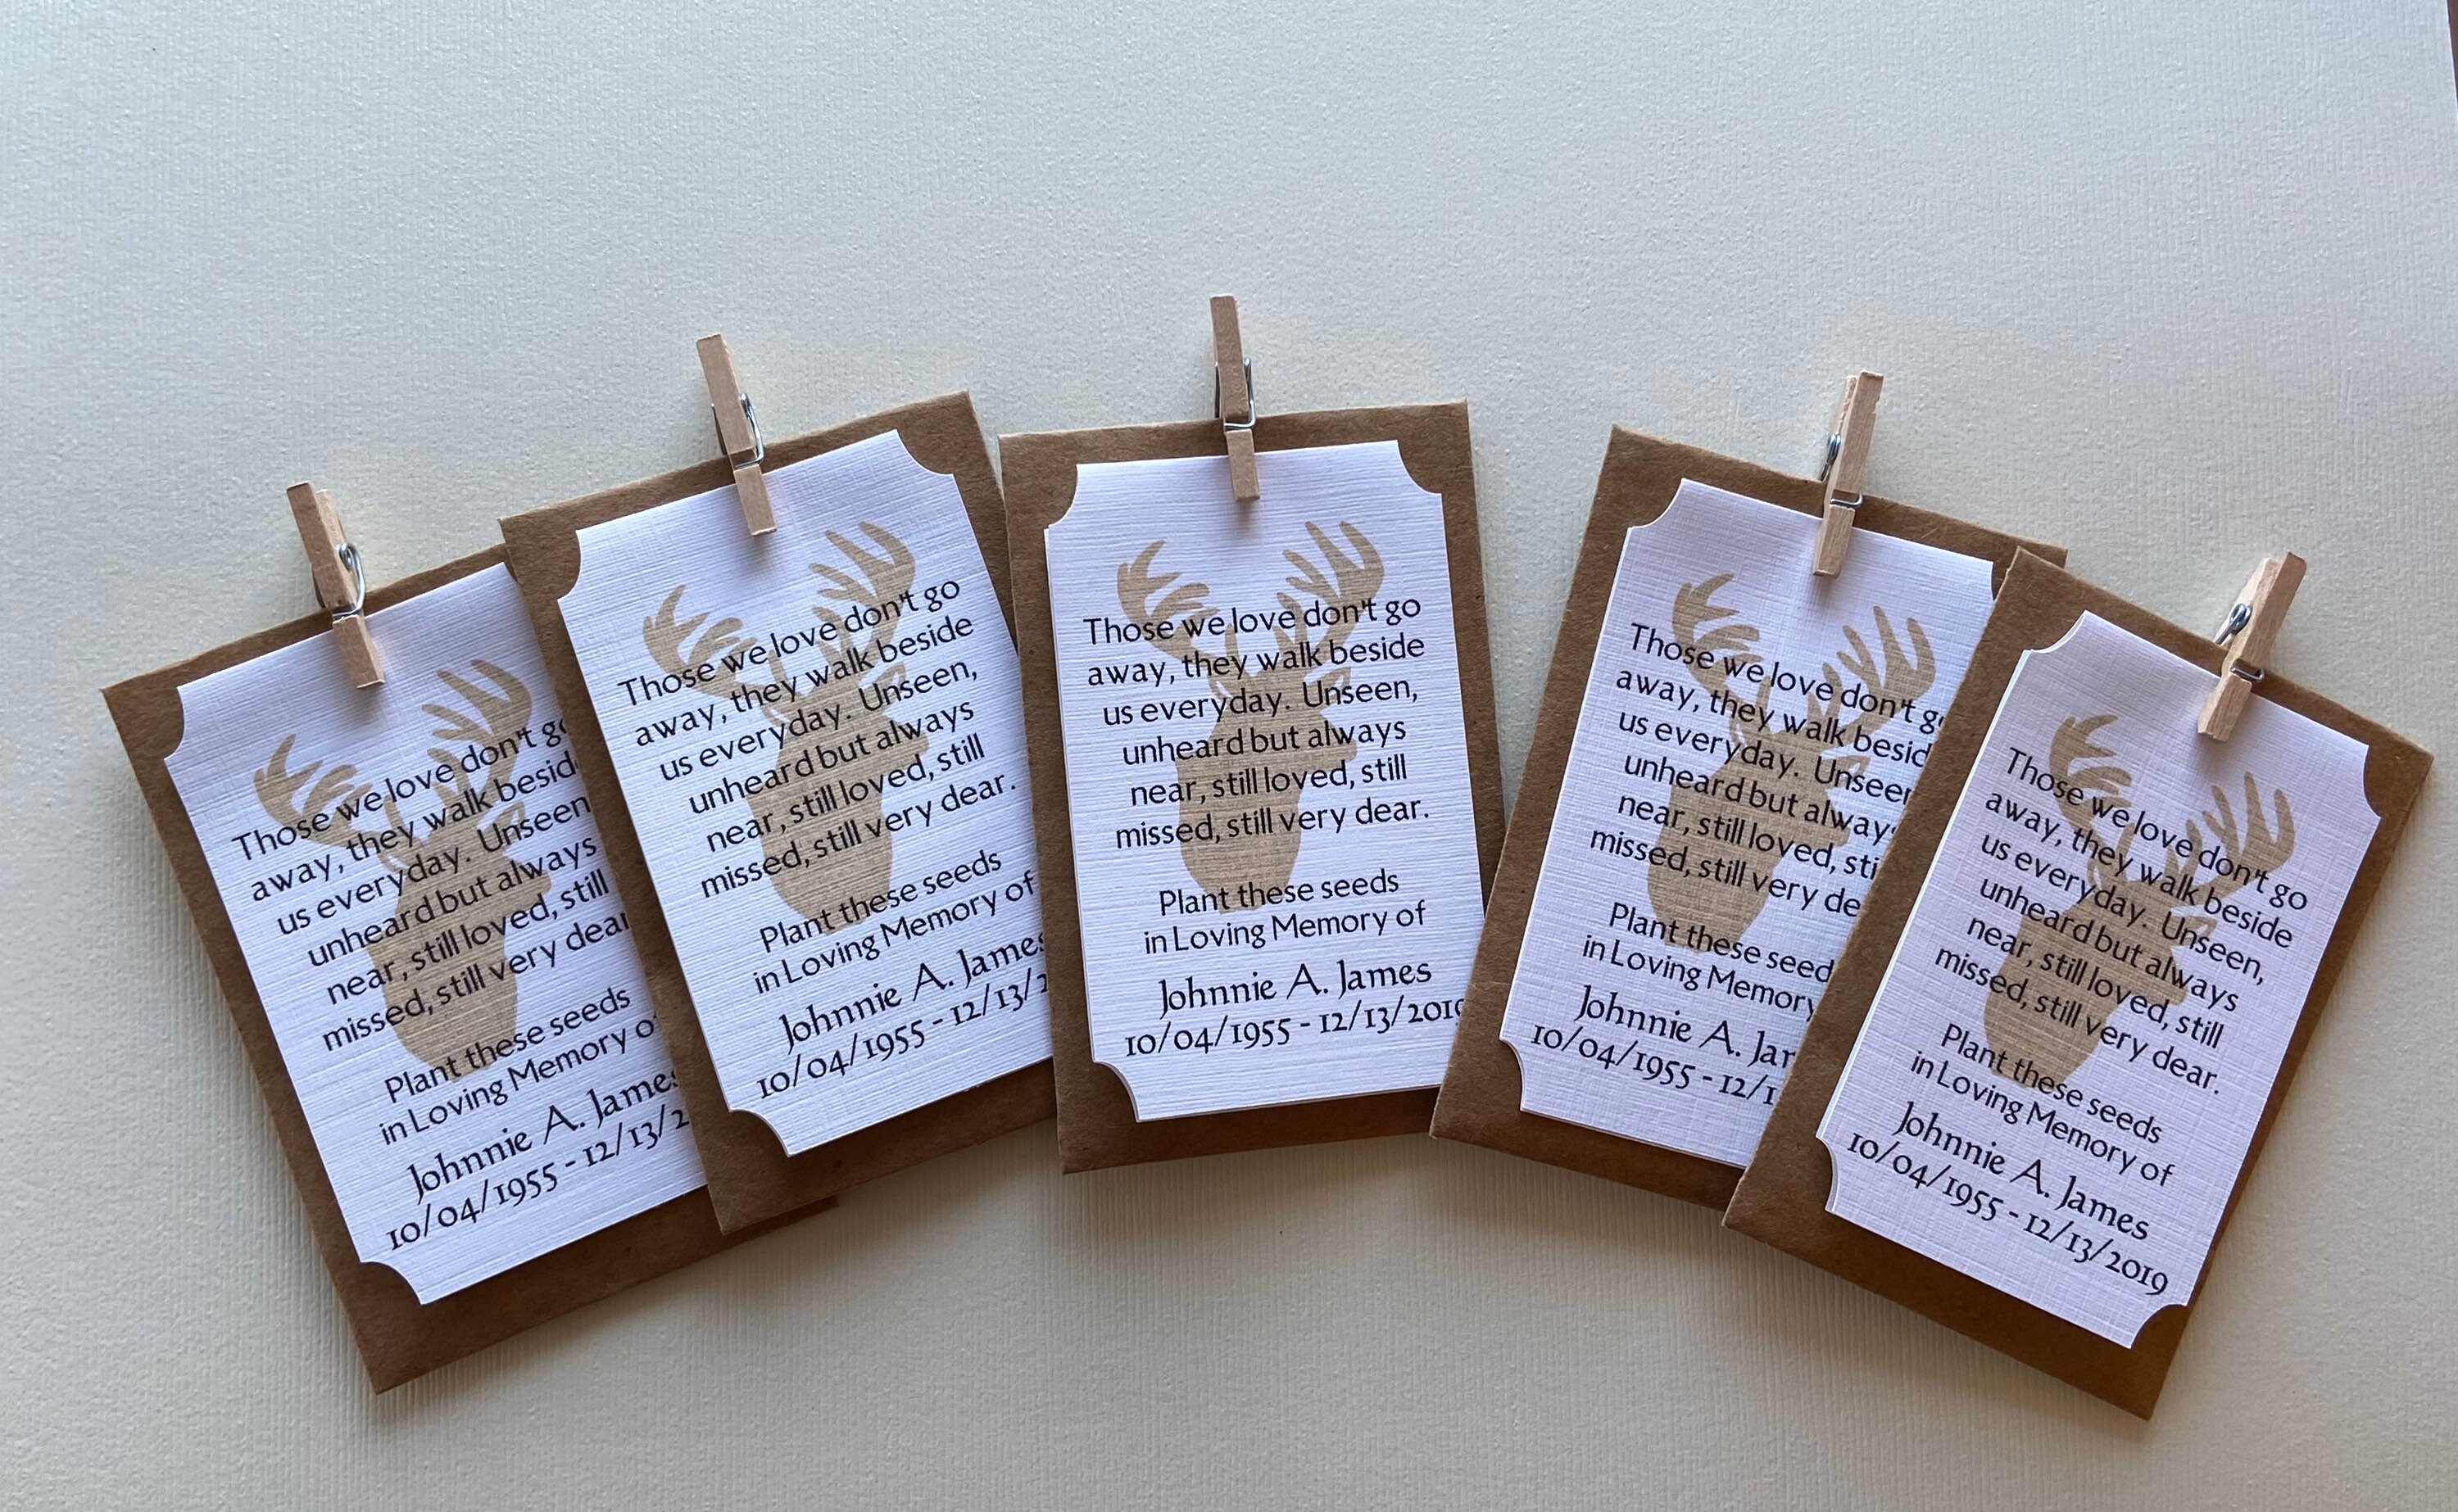 Those we love don't go
away, they walk beside
us everyday. Unseen
unheard but always
near, still loved, still
missed, still very dear
Plant these seeds
in Loving Memory of
Johnnie A. James
10/04/1955 - 12/13/2
Those we love don't go
away, they walk beside
us everyday. Unseen,
unheard but always
near, still loved, still
missed, still very dear.
Plant these seeds
in Loving Memory of
Johnnie A. James
10/04/1955 - 12/13/2
Those we love don't go
away, they walk beside
us everyday. Unseen,
unheard but always
near, still loved, still
missed, still very dear.
Plant these seeds
in Loving Memory of
Johnnie A. James
10/04/1955 - 12/13/2019
Those we love don't g
away, they walk besid
us everyday. Unseen
unheard but always
near, still loved, sti
missed, still very de
Plant these seed
in Loving Memory
Johnnie A. Jar
10/04/1955 - 12/1
Those we love don't go
away, they walk beside
us everyday. Unseen,
unheard but always
near, still loved, still
missed, still very dear.
Plant these seeds
in Loving Memory of
Johnnie A. James
10/04/1955 - 12/13/2019